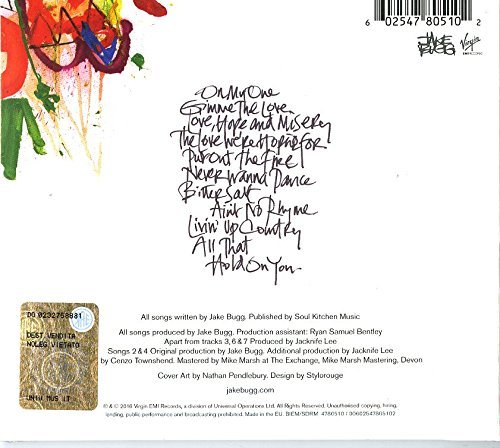 6 02547 80510 2
JAKE
BUGG
Virgin
EMI RECORDS
On My One
Gimme The Love
Love, Hope and Misery
The Love We're Hoping For
Put Out The Fire
Never Wanna Dance
Bitter Salt
Ain't No Rhyme
Livin' Up Country
All That
Hold On You
All songs written by Jake Bugg. Published by Soul Kitchen Music
All songs produced by Jake Bugg. Production assistant: Ryan Samuel Bentley
Apart from tracks 3, 6 & 7 Produced by Jacknife Lee
Songs 2 & 4 Original production by Jake Bugg. Additional production by Jacknife Lee
by Cenzo Townshend. Mastered by Mike Marsh at The Exchange, Mike Marsh Mastering, Devon
Cover Art by Nathan Pendlebury. Design by Stylorouge
jakebugg.com
℗ & © 2016 Virgin EMI Records, a division of Universal Operations Ltd. All Rights Reserved. Unauthorised copying, hiring,
lending, public performance and broadcasting prohibited. Made in the E.U. BIEM/SDRM 4780510 / 00602547805102
DG 0232758831
DEST.VENDITA
NOLEG VIETATO
UNIV MUS IT